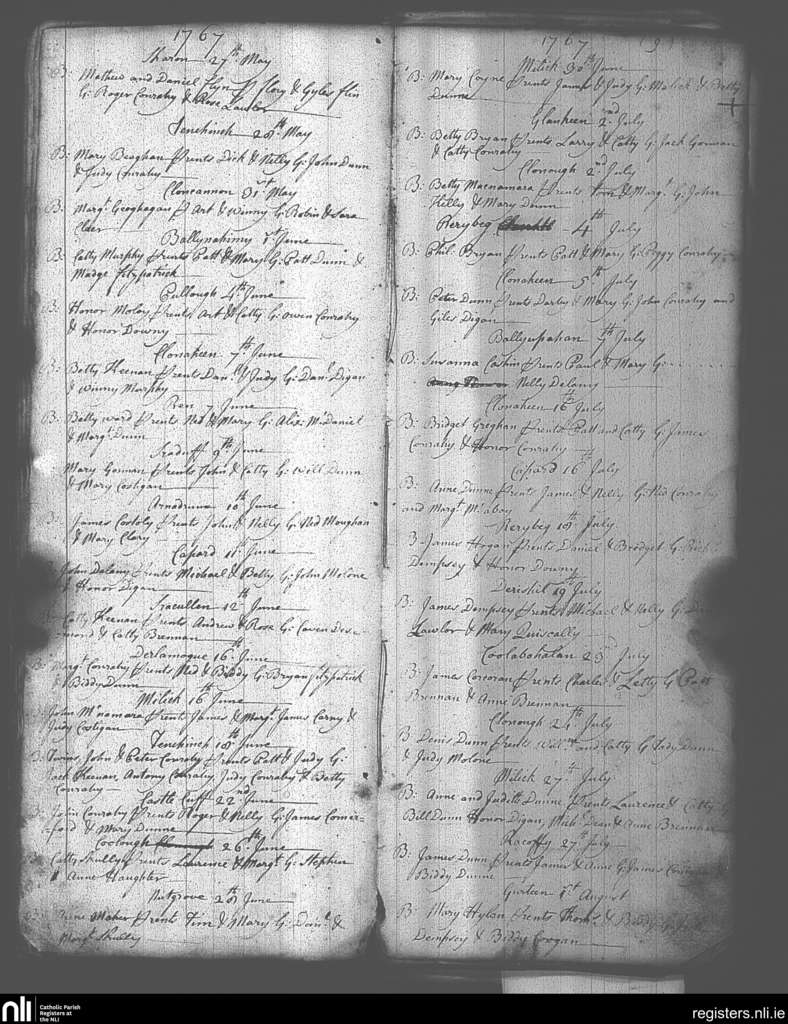 1767
Sharon 27th May
B: Mathew and Daniel Flyn P Flory & Gyles Flin
G: Roger Conrahy & Rose Lawlor
Tenehinch 28th May
B: Mary Beaghan Prents Dick & Nelly G: John Dunn
& Judy Conrahy
Cloncannon 31st May
B: Margt Geoghagan P Art & Winny G: Robin & Sara
Claer
Ballynahimy 1st June
B: Catty Murphy Prents Patt & Mary G: Patt Dunn &
Madge Fitzpatrick
Cullough 4th June
B: Honor Moloy Prents Art & Catty G: Owen Conrahy
& Honor Downy
Clonaheen 7th June
B: Betty Heenan Prents Danl & Judy G: Danl Digan
& Winny Murphy
7 June
B: Betty Ward Prents Ned & Mary G: Alex McDaniel
& Margt Dunn
Sraduff 9th June
Mary Gorman Prents John & Catty G: Will Dunn
& Mary Costigan
10th June
B: James Prents John & Nelly G: Ned Moughan
& Mary Clary
Capard 11th June
John Delany Prents Michael & Betty G: John Molone
& Honor Digan
Sracullen 12th June
Catty Heenan Prents Andrew & Rose G: Caven Des-
mond & Catty Brennan
Derlamogue 16th June
B: Margt Conrahy Prents Ned & Biddy G: Bryan Fitzpatrick
& Biddy Dunn
Milick 16th June
John McNamara Prents James & Margt James Carny &
Judy Costigan
Tenehinch 18th June
B: Twins, John & Peter Conrahy Prents Patt & Judy G:
Jack Heenan, Antony Conrahy, Judy Conrahy & Betty
Conrahy
Castle Cuff 22nd June
John Conrahy Prents Roger & Nelly G: James Comer-
ford & Mary Dunne
Coolough 26th June
Catty Skully Prents Laurence & Margt G: Stephen
& Anne Haughter
Nutgrove 28th June
B: Anne Maher Prents Tim & Mary G: Danl &
Margt Skully
1767 (9)
Milick 30th June
B: Mary Coyne Prents James & Judy G: Malick & Betty
Dunne
Glanheen 2nd July
B: Betty Bryan Prents Larry & Catty G: Jack Gorman
& Catty Conrahy
Clonough 2nd July
B: Betty Macnamara Prents Tom & Margt G: John
Kelly & Mary Dunn
Rerybeg 4th July
B: Phil Bryan Prents Patt & Mary G: Peggy Conrahy
Clonaheen 5th July
B: Peter Dunn Prents Darby & Mary G: John Conrahy and
Giles Digan
7th July
B: Susanna Caskin Prents Paul & Mary G:
Nelly Delany
Clonaheen 16th July
B: Bridget Greghan Prents Patt and Catty G James
Conrahy & Honor Conrahy
Capard 16th July
B: Anne Dunne Prents James & Nelly G: Ned Conrahy
and Margt
Rerybeg 18th July
B: James Hogan Prents Daniel & Bridget G:
Dempsey & Honor Downy
19 July
B: James Dempsey Prents Michael & Kelly G
Lawlor & Mary
Coolabohalan 23d July
B: James Corcoran Prents Charles & Letty G Patt
Brennan & Anne Brennan
Clonough 24th July
B Denis Dunn Prents Willm and Catty G Judy Dunn
& Judy Molone
Milick 27th July
B: Anne and Judith Dunne Prents Laurence & Catty G
Bill Dunn Honor Digan, Mich Dean & Anne Brennan
Racoffy 27th July
B: James Dunn Prents James & Anne G James
Biddy Dunne
Gurteen 1st August
B Mary Hylan Prents Thoms & Biddy G:
Dempsey & Biddy Coogan
nli
Catholic Parish
Registers at
the NLI
registers.nli.ie